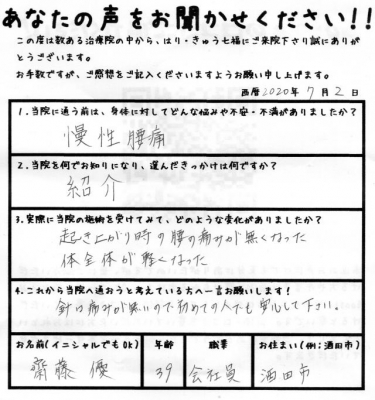 あなたの声をお聞かせください!!
この度は数ある治療院の中から、はり・きゅう七福にご来院下さり誠にありが
とうございます。
お手数ですが、ご感想をご記入くださいますようお願い申し上げます。
西暦2020年 7月 2日
1.当院に通う前は、身体に対してどんな悩みや不安・不満がありましたか?
慢性腰痛
2.当院を何でお知りになり、選んだきっかけは何ですか?
紹介
3.実際に当院の施術を受けてみて、どのような変化がありましたか?
起き上がり時の腰の痛みが無くなった
体全体が軽くなった
4.これから当院へ通おうと考えている方へ一言お願いします!
針は痛みが無いので初めての人でも安心して下さい。
お名前(イニシャルでもOK) 年齢 職業 お住まい(例:酒田市)
齋藤 優 39 会社員 酒田市